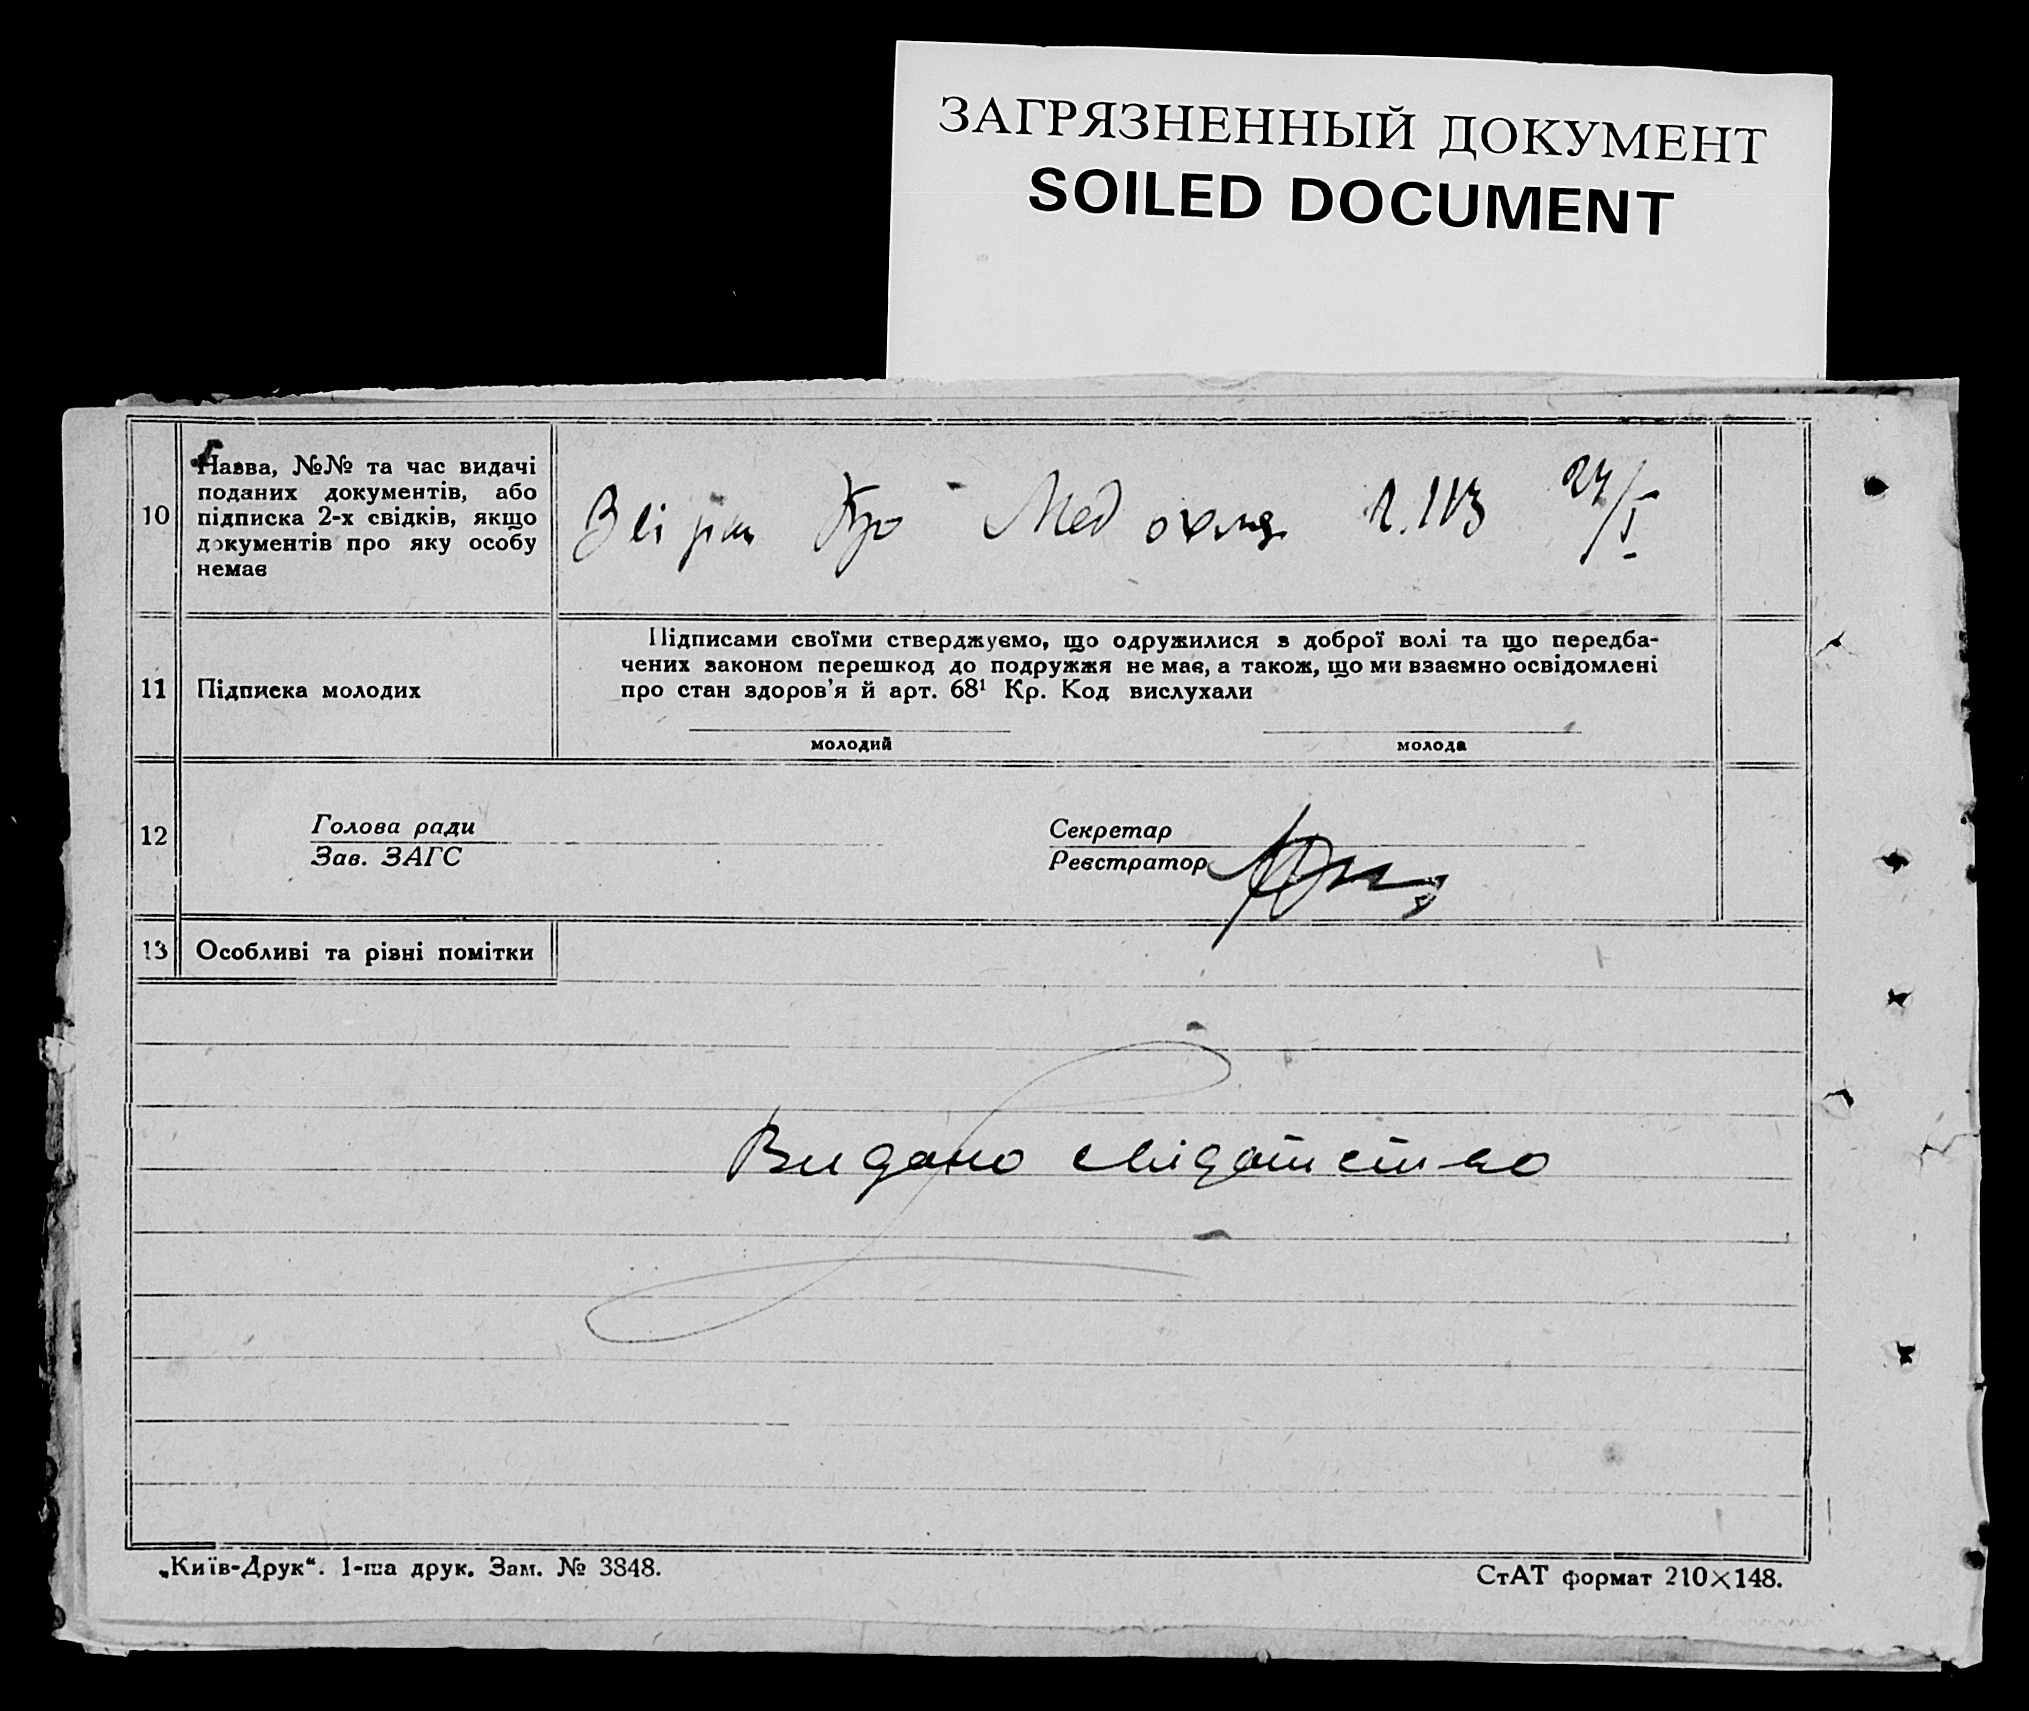 ЗАГРЯЗНЕННЫЙ ДОКУМЕНТ
SOILED DOCUMENT
10
Назва, №№ та час видачі
поданих документів, або
підписка 2-х свідків, якщо
документів про яку особу
немає
Про Мед огляд 24/I
11
Підписка молодих
Підписами своїми стверджуємо, що одружилися з доброї волі та що передба-
чених законом перешкод до подружжя не має, а також, що ми взаємно освідомлені
про стан здоров’я й арт. 68¹ Кр. Код вислухали
молодий
молода
12
Голова ради
Зав. ЗАГС
Секретар
Реєстратор
13
Особливі та різні помітки
Видано свідотство
„Київ-Друк“. 1-ша друк. Зам. № 3848.
СтАТ формат 210×148.